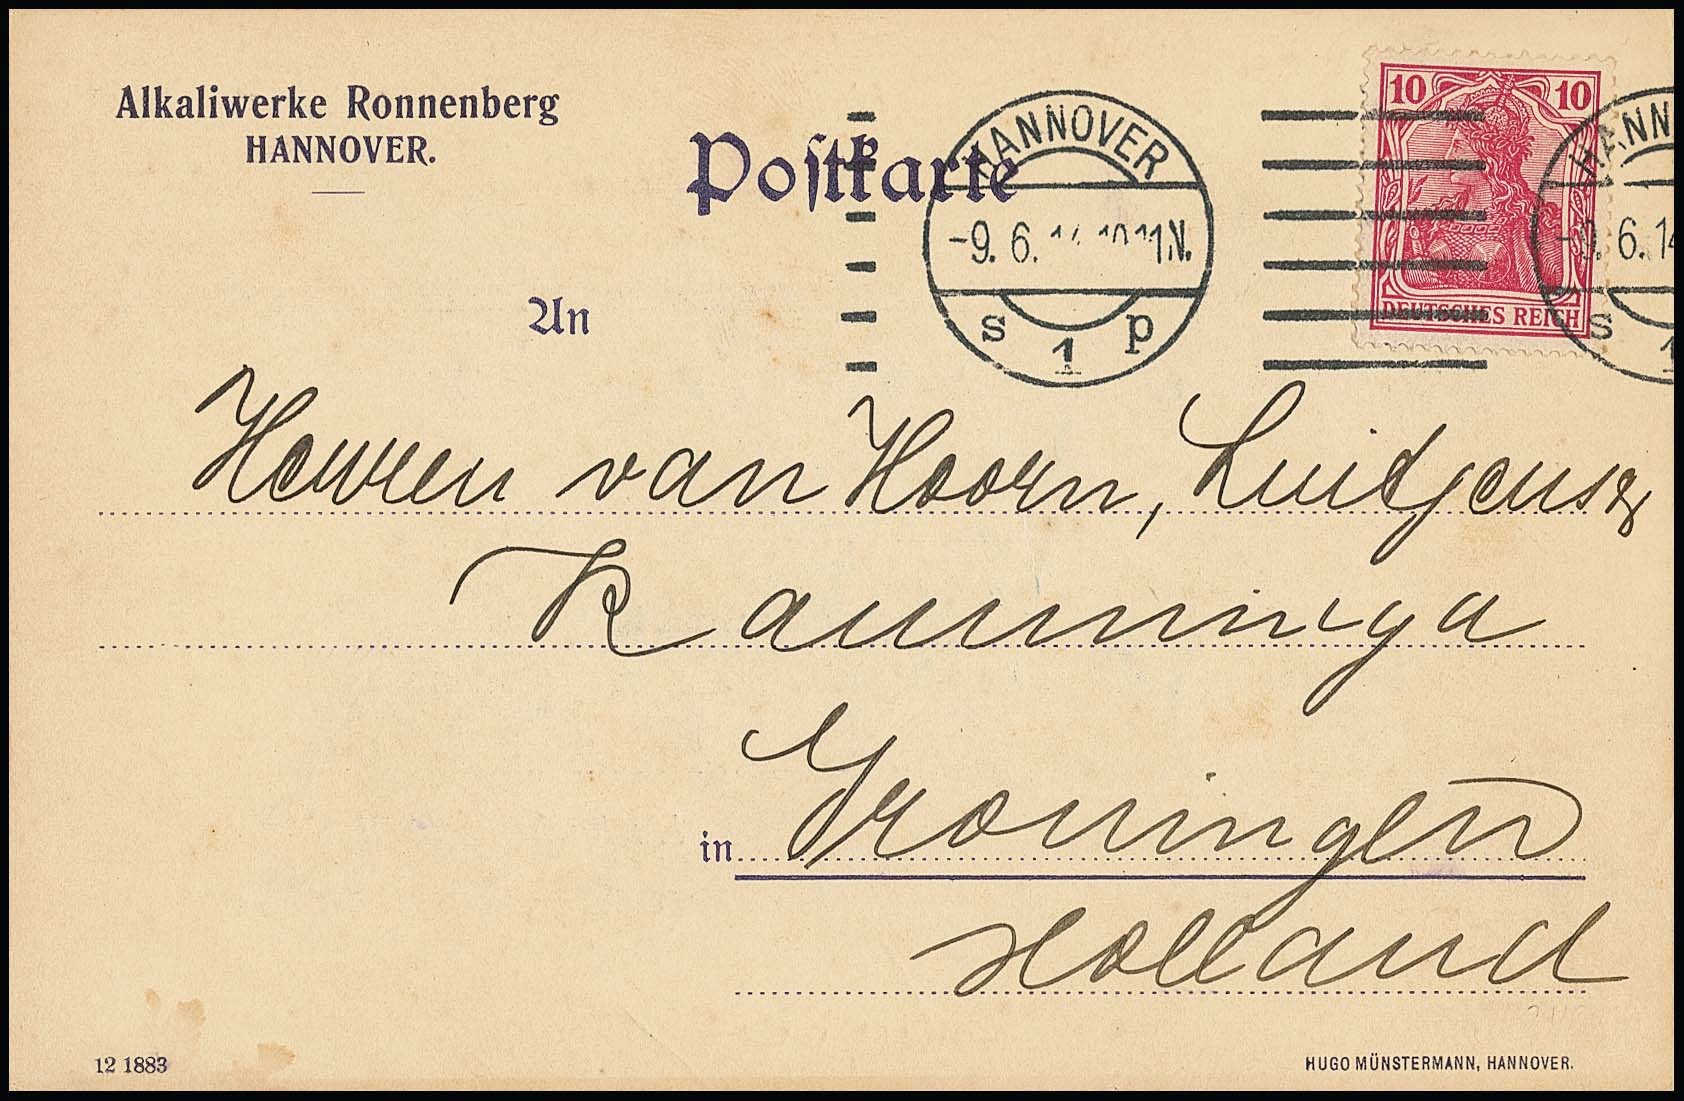 Alkaliwerke Ronnenberg
HANNOVER.
Postkarte
HANNOVER
-9.6.14.10-11N.
s 1 p
10 10
DEUTSCHES REICH
HANN
-9.6.14
s 1
An
Herren van Hoorn, Luitjens &
Kamminga
in Groningen
Holland
12 1883
HUGO MÜNSTERMANN, HANNOVER.